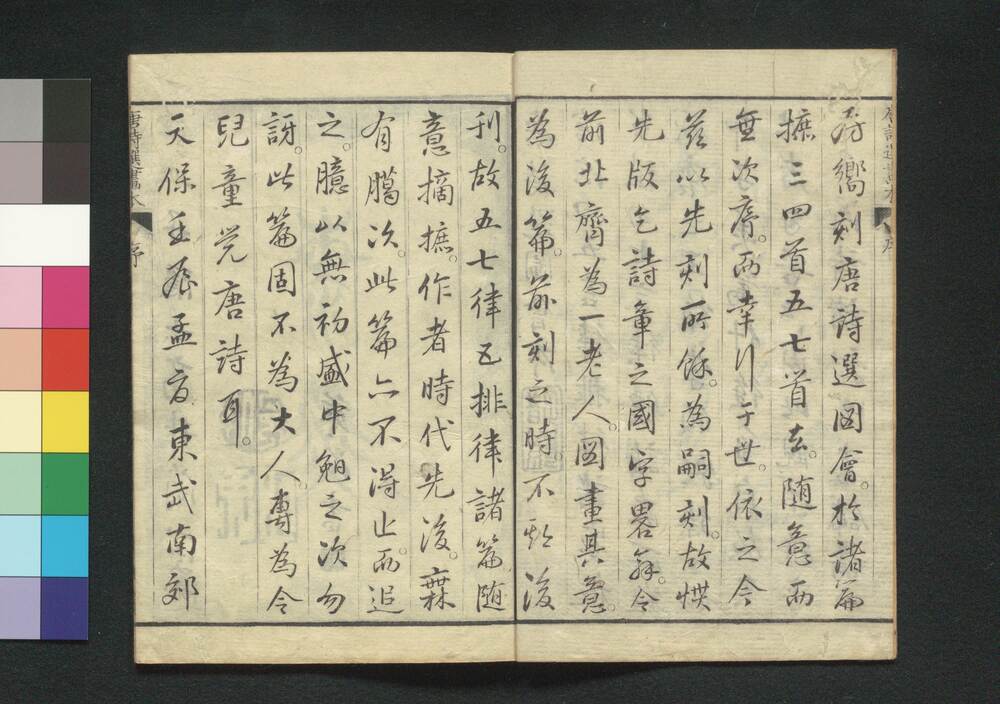 唐詩選畫本
序
方嚮刻唐詩選図會。於諸篇
摭三四首五七首去。随意而
無次序。而幸行于世。依之今
茲以先刻所餘。為嗣刻。故慎
先版乞詩章之國字畧解。令
前北齋為一老人。図畫其意。
為後篇。前刻之時。不欺後
刊。故五七律五排律諸篇随
意摘摭。作者時代先後。無
有臈次。此篇亦不得止而追
之。臆以無初盛中晩之次勿
訝。此篇固不為大人。専為令
兒童覚唐詩耳。
天保壬辰孟夏東武南郊
唐詩選畫本
序